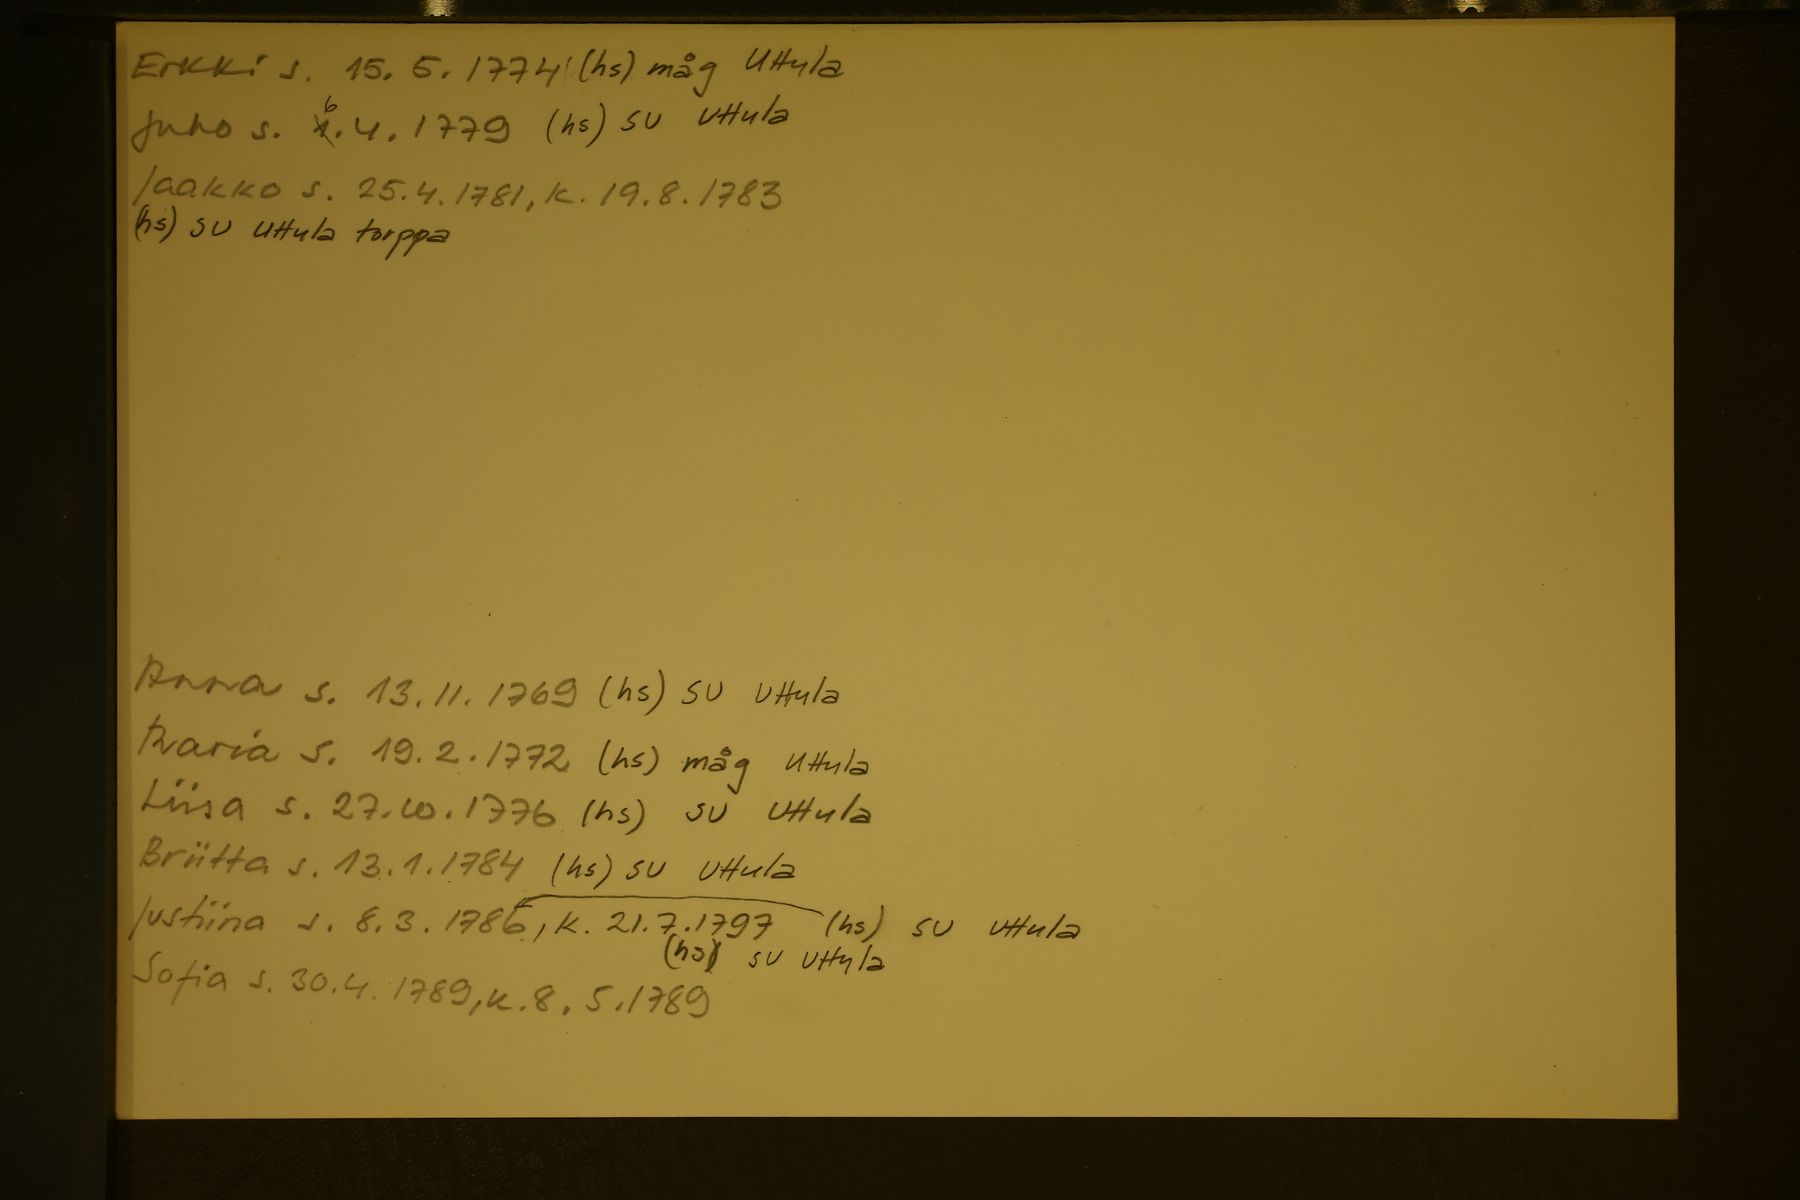 Erkki s. 15. 5. 1774 (hs) måg Uttula
Juho s. 6. 4. 1779 (hs) SU Uttula
Jaakko s. 25.4.1781, k. 19.8.1783
(hs) SU Uttula torppa
Anna s. 13.11.1769 (hs) SU Uttula
Maria s. 19.2.1772 (hs) måg Uttula
Liisa s. 27.10.1776 (hs) SU Uttula
Briitta s. 13.1.1784 (hs) SU Uttula
Justiina s. 8.3.1786, k. 21.7.1797 (hs) SU Uttula
(hs) SU Uttula
Sofia s. 30.4.1789, k. 8.5.1789